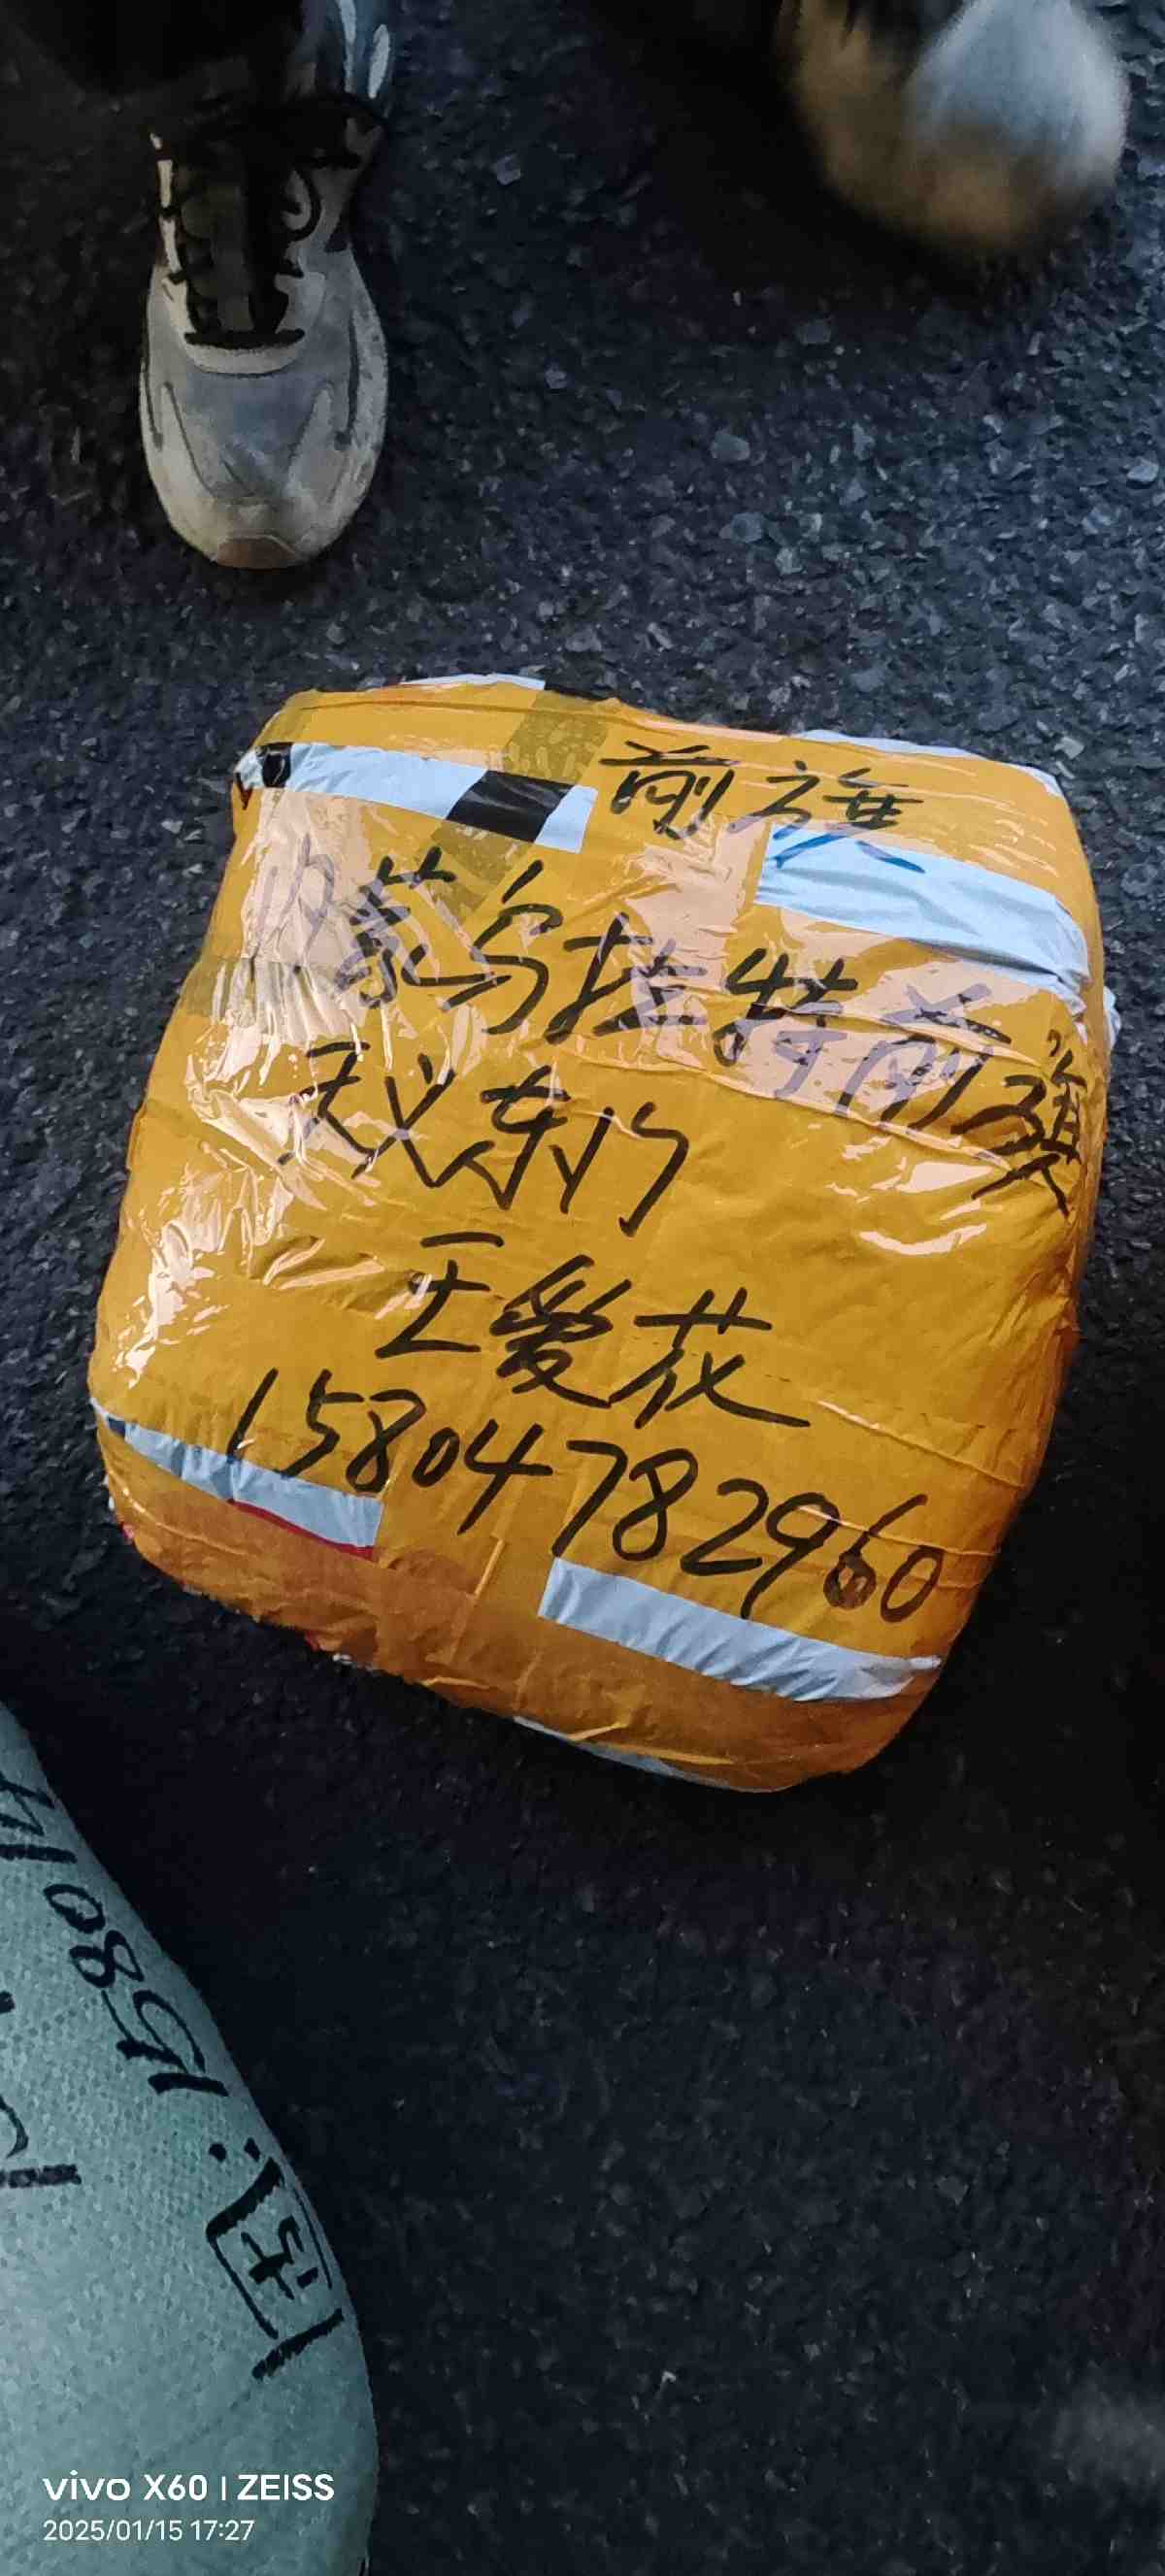 前旗
内蒙乌拉特前旗
王爱花
15804782960
15804
vivo X60 | ZEISS
2025/01/15 17:27